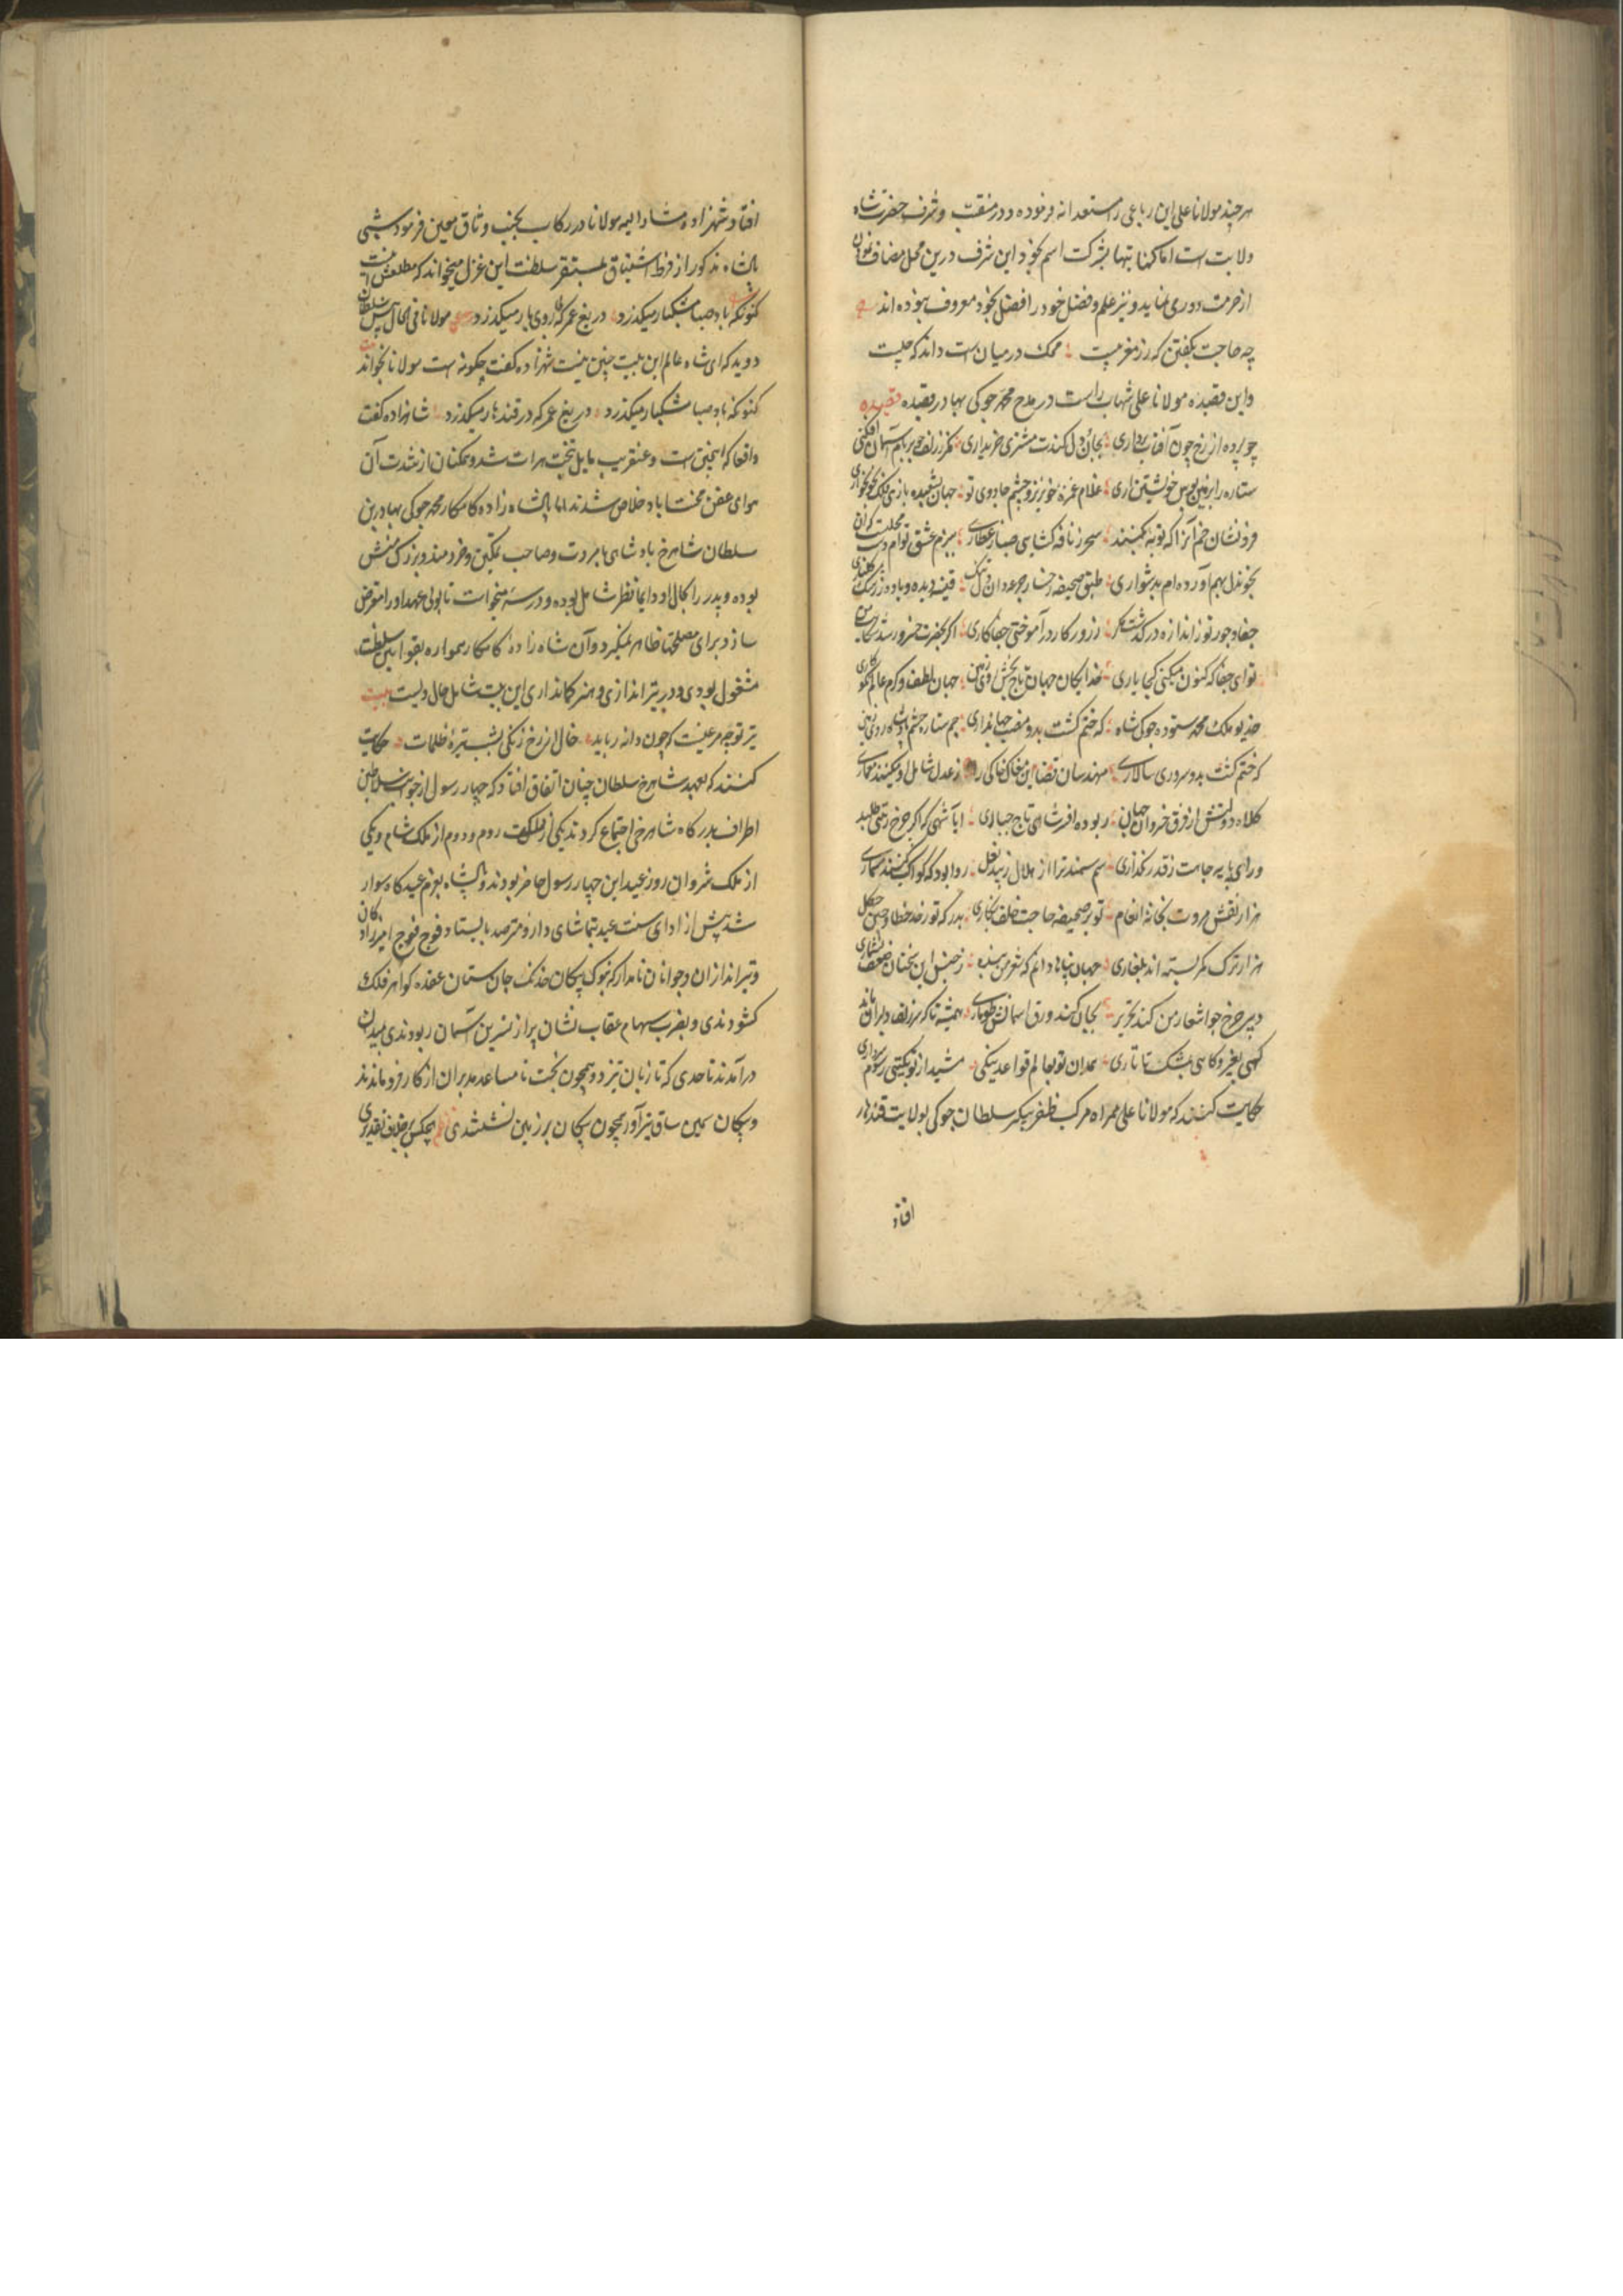 هر چند مولانا علی این رباعی را مستعدانه فرموده و در منقبت و شرف حضرت شاه
ولایت است اما کهنا بتنها بشرکت اسم بخود این شرف درین محل مضاف نمودن
از حرمت دوری نماید و نیز علم و فضل خود را فضل بخود معروف بوده اند
چه حاجت بگفتن که زر مغربیست محک در میان است داند که چیست
و این قصیده مولانا علی شهاب راست در مدح محمد جوکی بهادر قصیده قصیده
چو پرده از رخ چون آفتاب برداری بجان و دل کندت مشتری خریداری مگر ز زلف چو بر بام آسمان فکنی
ستاره را بزمین بوس خویشتن آری غلام غمزه خونریز و چشم جادوی تو جهان بشعبده بازی فلک بخونخواری
فرونشان خم آنرا که توبه میکنند سحر ز نافه گشای صبا ز عطاری ببزم عشق توام دست مجلت گران
بخوندل بهم آورده ام بدشواری طبق صحیفه رخسار و جرعه دان قنینه دیده و باده زرشک گلناری
جفا و جور تو ز اندازه در گذشت مگر ز روزگار در آموختی جفاکاری اگر بحضرت خسرو رسد
توای جفا که کنون میکنی کجا یاری خدایگان جهان تاج بخش روی زمین جهان لطف و کرم عالم نکوکاری
خدیو ملک محمد ستوده جوکی شاه که ختم گشت بدو منصب جهانداری جم ستاره حشم پادشاه روی زمین
که ختم گشت بدو سروری و سالاری مهندسان قضا این مغاک خاکی را ز عدل شامل او میکنند معماری
کلاه دولتش از فرق خسروان جهان ربوده افسر شاهی تاج جباری ایا شهی که اگر چرخ رتبتی طلبد
ورای پایه جاهت ز قدر نگذاری سم سمند ترا از هلال زیبد نعل روا بود که کواکب کنند مسماری
هزار نقش مروت بخانه انعام تو بر صحیفه حاجت خلق بنگاری بدر که تو ز حد خطا و چین و چگل
هزار ترک کمر بسته اند بلغاری جهان پناها دانم که شعر من بنده ز جنس این سخنان ضعیف نشماری
دبیر چرخ چو اشعار من کند تحریر بجان کند ورق آسمانش طوماری همیشه تا که سر زلف دلبران ماند
گهی بغیر و گاهی بمشک تاتاری بمان تو بعالم قواعد نیکی مشید از تو بگیتی رسوم سرداری
حکایت کنند که مولانا علی همراه مرکب ظفر پیکر سلطان جوکی بولایت قندهار
افتاد
افتاد و شهزاده مشارالیه مولانا در رکاب بجنب وثاق معین فرمود شبی
پادشاه مذکور از فرط اشتیاق بمستقر سلطنت این غزل میخواند که مطلعش اینست
کنونکه باد صبا مشکبار میگذرد دریغ عمر که بی روی یار میگذرد مولانا فی الحال پیش سلطان
دوید که ای شاه عالم این بیت چنین نیست شهزاده گفت چگونه است مولانا بخواند
کنونکه باد صبا مشکبار میگذرد دریغ عمر که در قندهار میگذرد شاهزاده گفت
واقعا که اینچنین است و عنقریب مایل بتخت هرات شد و ممکنان از شدت آن
هوای عفن محنتآباد خلاص شدند اما پادشاه زاده کامکار محمد جوکی بهادر بن
سلطان شاهرخ پادشاهی با مروت و صاحب تمکین و خردمند و بزرگ منش
بوده و پدر را بکمال او دایما نظر شامل بوده و در سر میخواست تا بولی عهد او را مفوض
سازد برای مصلحتها ظاهر نمیکرد و آن شاه زاده کامکار همواره بقوانین سلطنت
مشغول بودی و در تیراندازی و هنر کمانداری این بیت شامل حال ویست بیت
تیر تو چه مرغیست که چون دانه رباید خال از رخ زنگی بشب تیره ظلمات حکایت
کنند که بعهد شاهرخ سلطان چنان اتفاق افتاد که چهار رسول از خواص سلاطین
اطراف بدرگاه شاهرخی اجتماع کردند یکی از مملکت روم و دوم از ملک شام و یکی
از ملک شروان روز عید این چهار رسول حاضر بودند و پادشاه بعزم عیدگاه سوار
شد پیش از ادای سنت عید بتماشای دار و مترصد بایستاد فوج فوج امیرزادگان
و تیراندازان و جوانان نامدار که بنوک پیکان خدنگ جان ستان عقده گواهر فلک
گشودندی و بضرب سهام عقاب نشان پر از نسرین آسمان ربودندی بمیدان
درآمدند تا حدی که تا زبان تیز دو همچون بخت نامساعد مدبران از کار فرو ماندند
و پیکان سیمین ساق تیرآور همچون پیکان بر زمین نشستندی هیچکس بر خلاف تقدیری